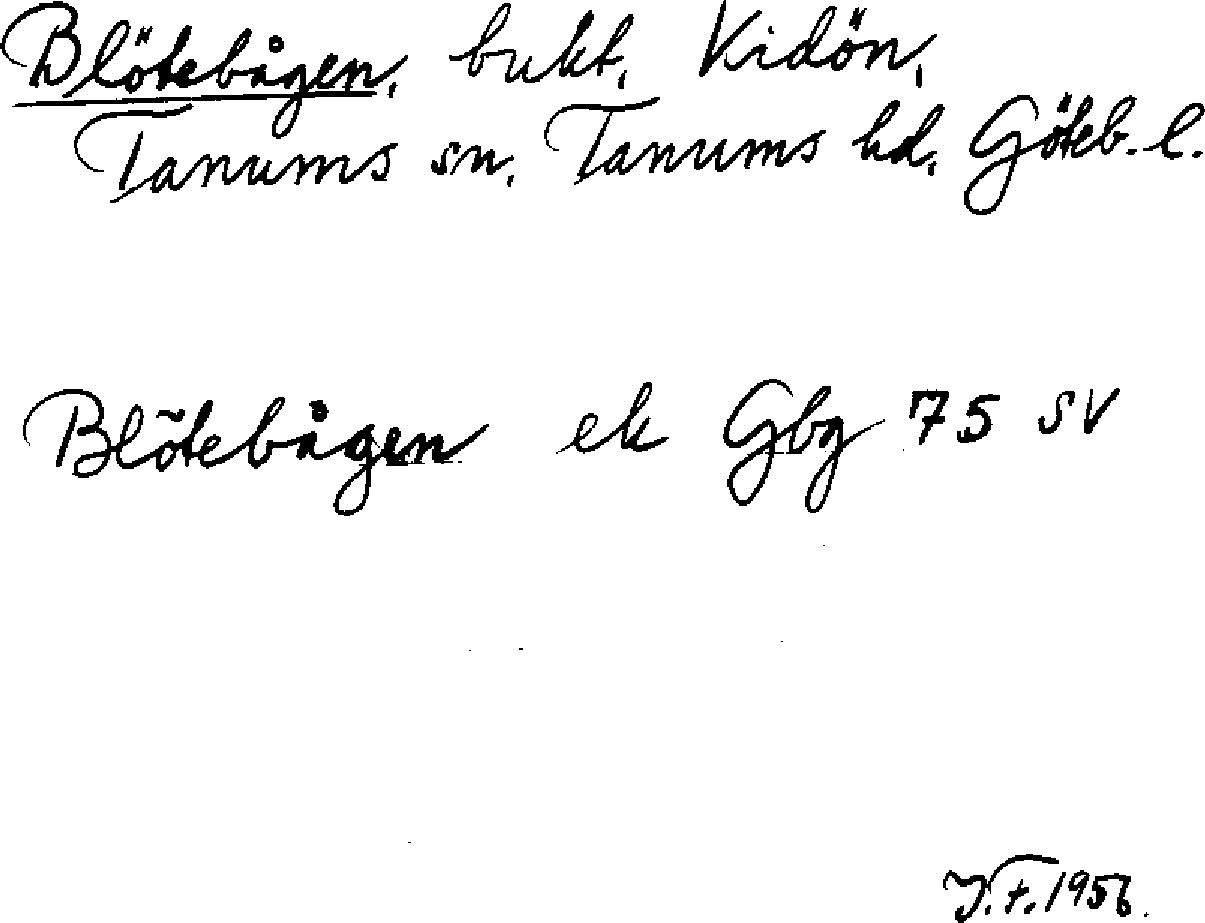 Blötebågen, bukt, Kidön,
Tanums sn, Tanums hd, Göteb. l.
Blötebågen ek Gbg 75 SV
1956.